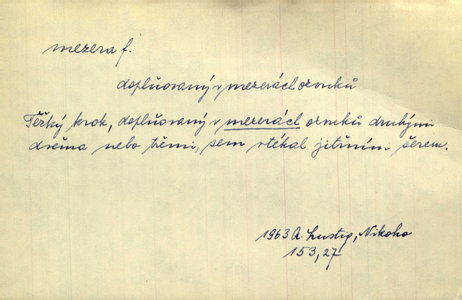 mezera f.
doplňovaný v mezerách ozvuků
Těžký krok, doplňovaný v mezerách ozvuků druhými
dvěma nebo třemi, sem vtékal jitřním šerem.
1963 A. Lustig, Nikoho
153, 27